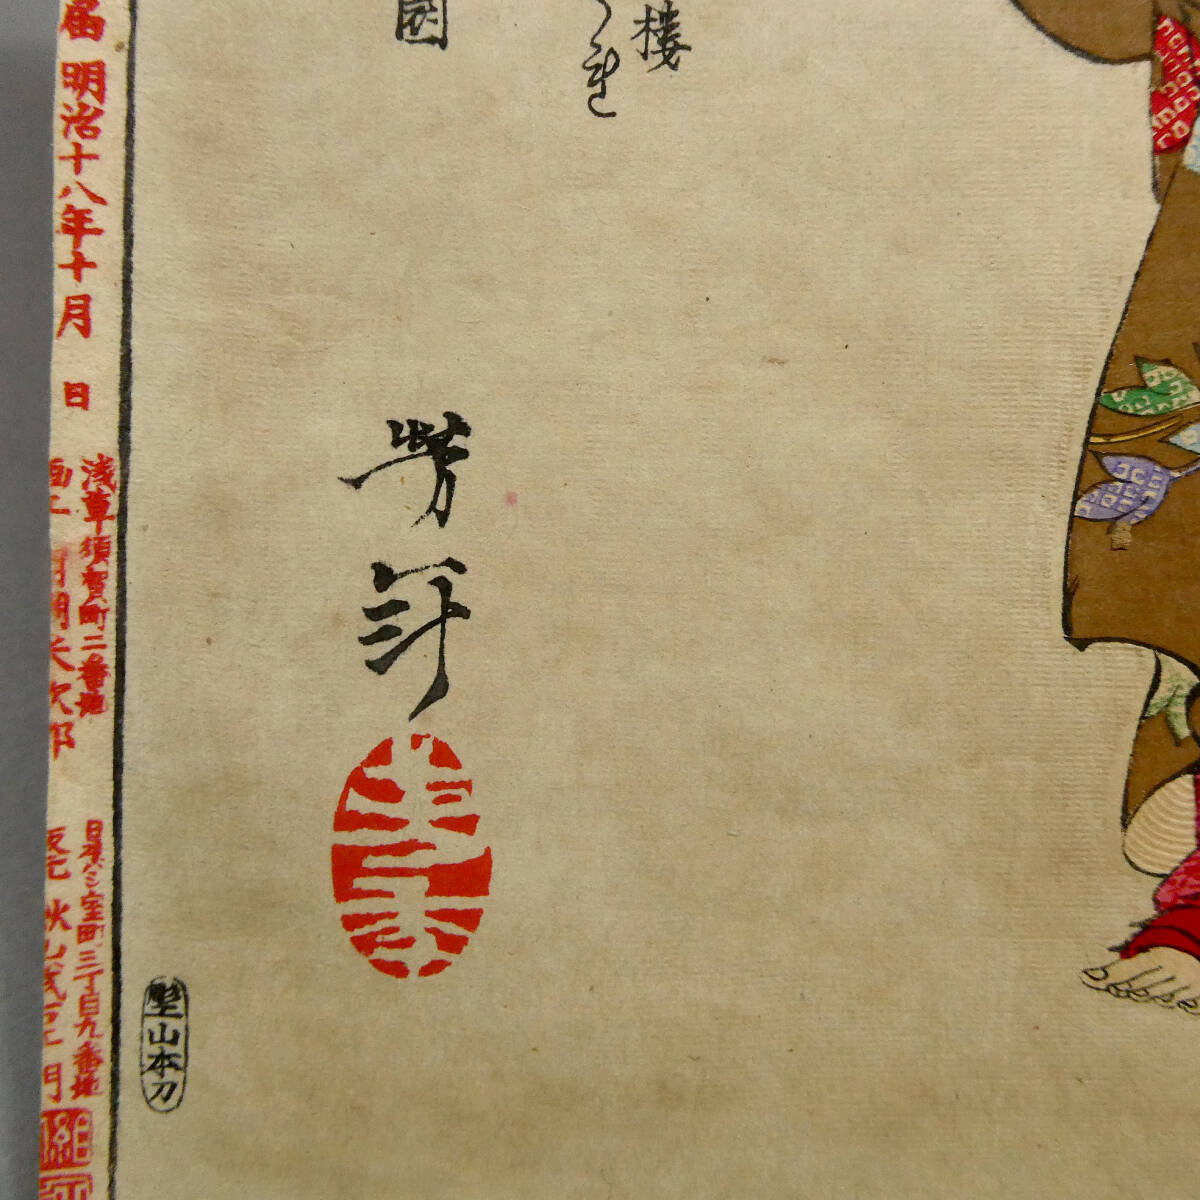 樓
國
芳年
届 明治十八年十月 日
浅草須賀町二番地
画工 月岡米次郎
日本バシ室町三丁目九番地
版元 秋山武右エ門
彫山本刀